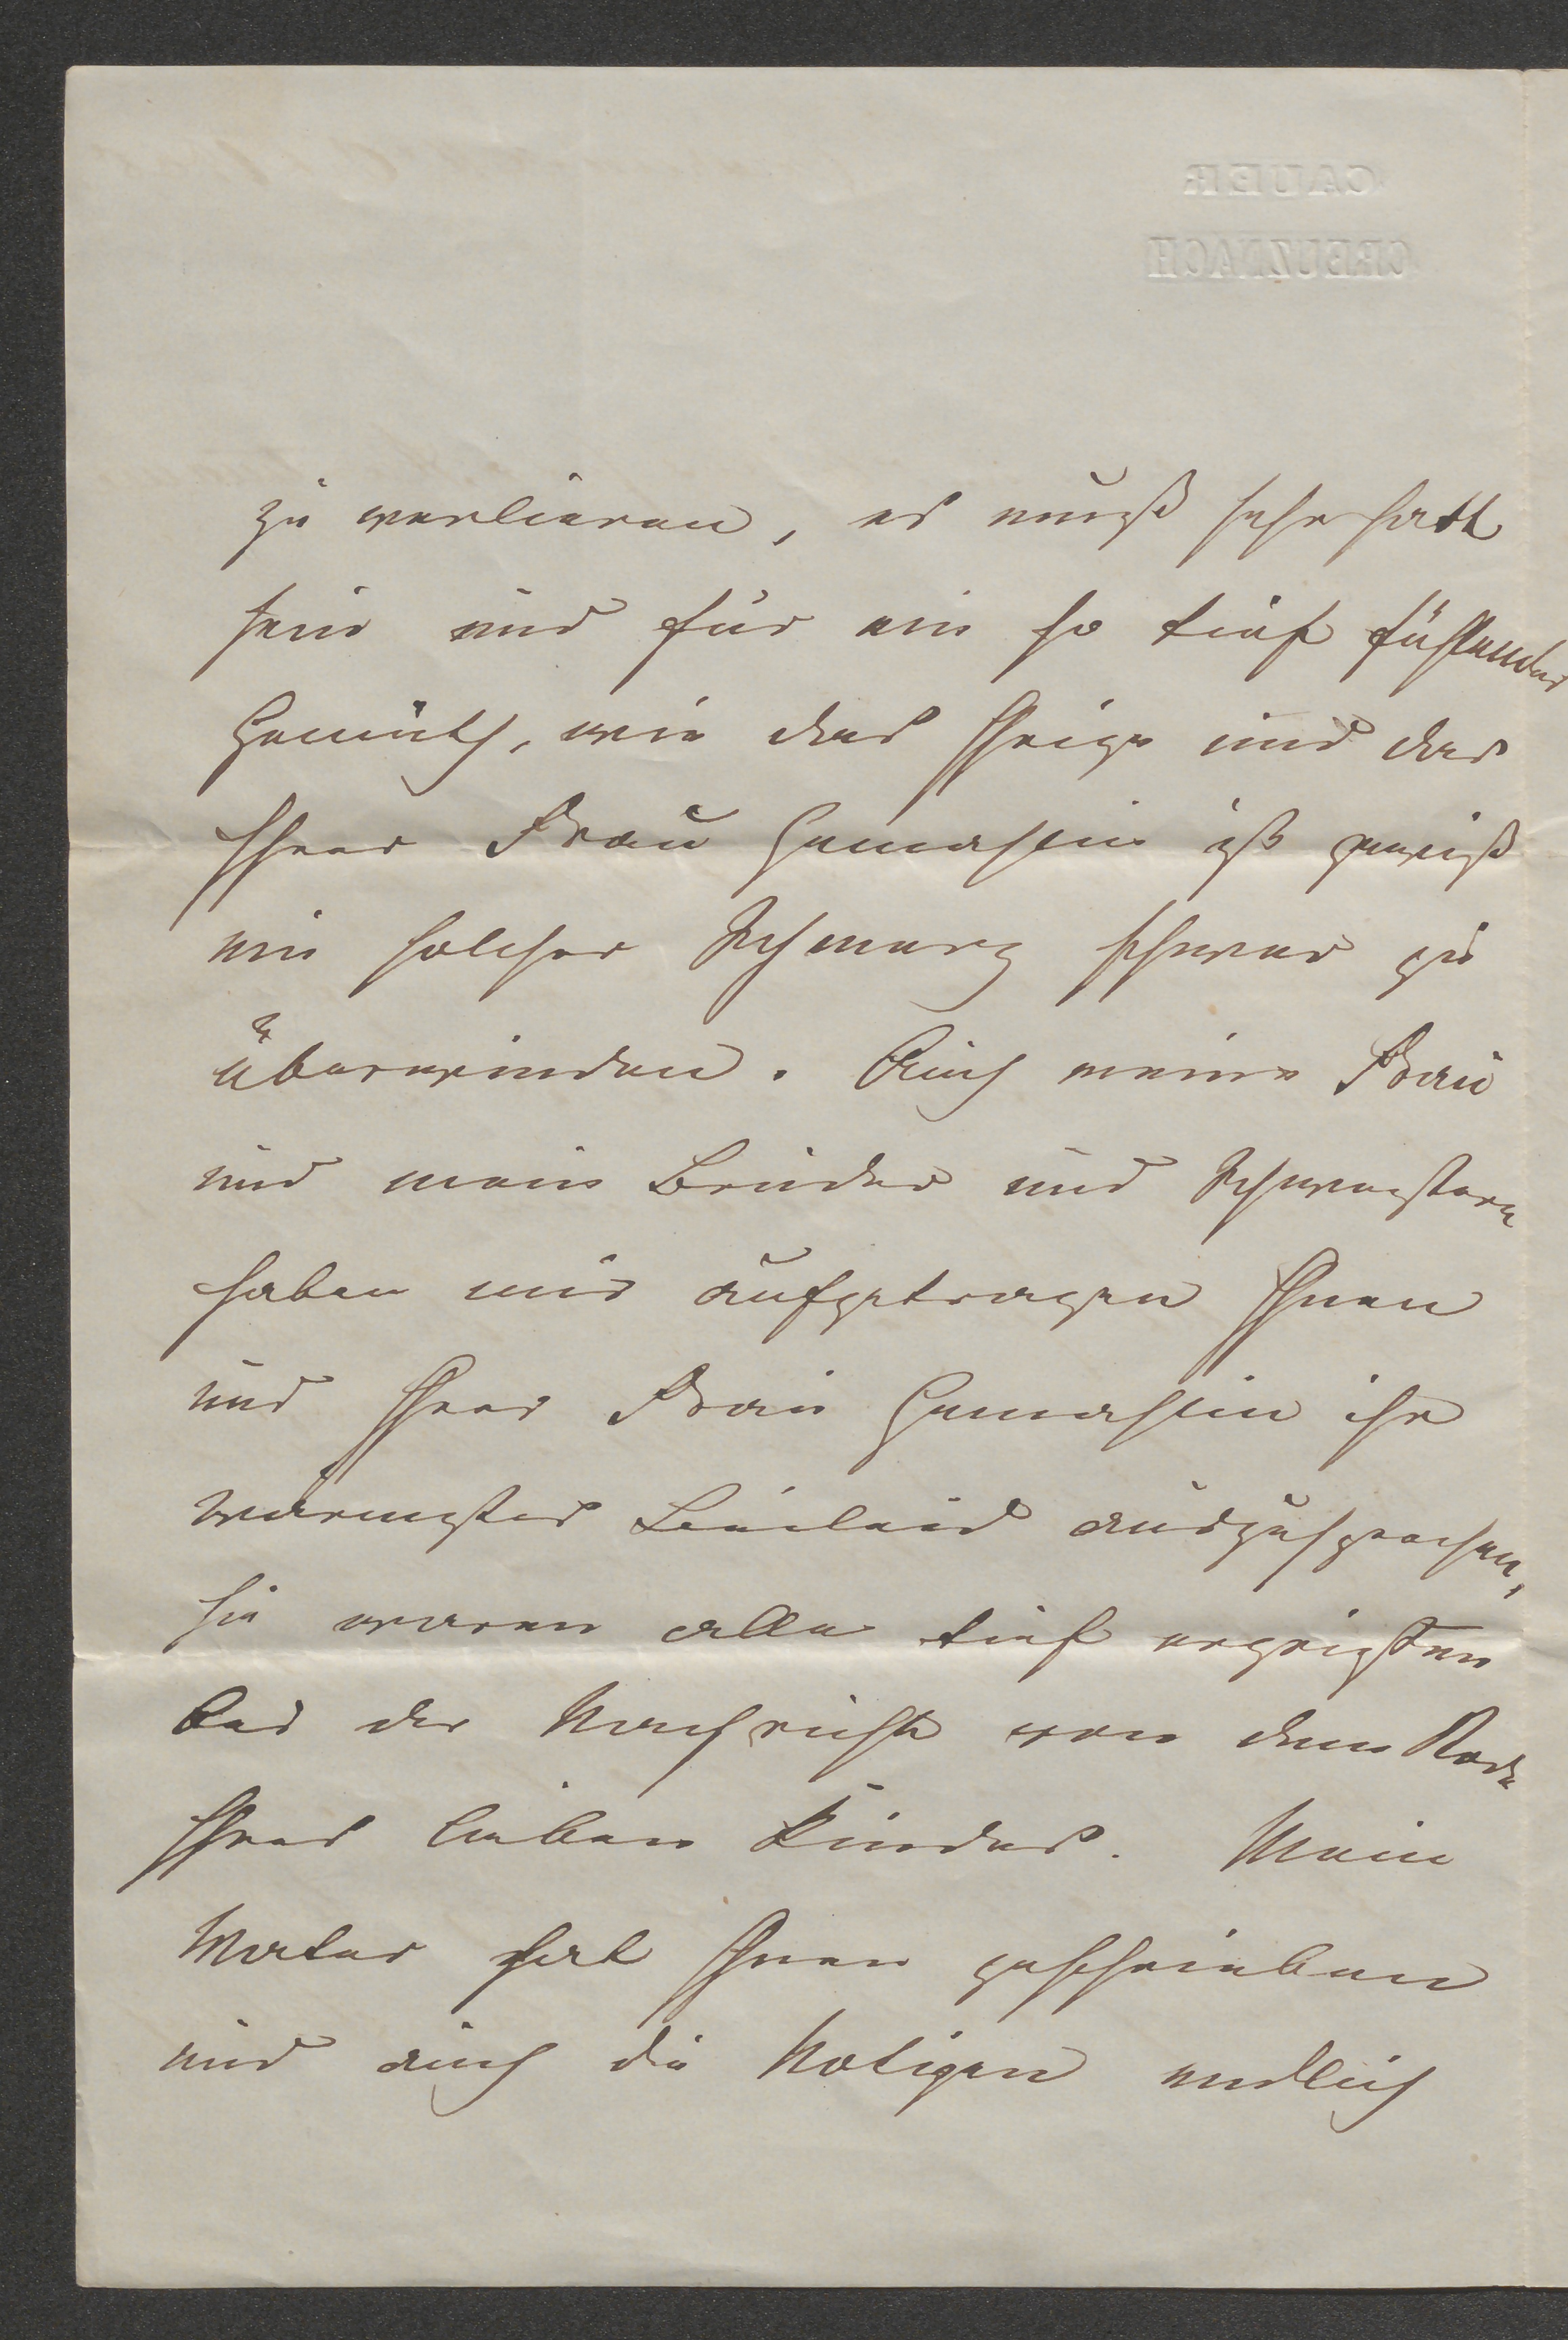 CAUER
CREUZNACH
zu verlieren, es muß sehr hart
sein und für ein so tief fühlendes
Gemüth, wie das Ihrige und das
Ihrer Frau Gemahlin ist gewiß
ein solcher Schmerz schwer zu
überwinden. Auch meine Frau
und mein Bruder und Schwestern
haben mir aufgetragen Ihnen
und Ihrer Frau Gemahlin ihr
wärmstes Beileid auszusprechen,
sie waren alle tief ergriffen
bei der Nachricht von dem Tode
Ihres lieben Kindes. Mein
Vater hat Ihnen geschrieben
und auch die Notizen endlich